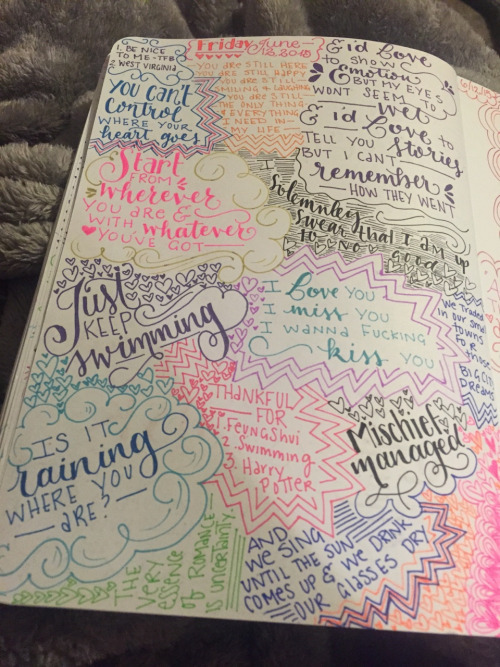 1. BE NICE
TO ME - TFB
2. WEST VIRGINIA
Friday June
YOU are STILL HERE
YOU are STILL HAPPY
YOU are STILL
SMILING & LAUGHING
YOU are STILL
THE ONLY THING
EVERYTHING
I NEED IN
MY LIFE
& id Love
to SHOW
Emotion
BUT MY EYES
WONT SEEM TO
Wet
& id Love to
TELL YOU Stories
BUT I CANT
remember
HOW THEY WENT
YOU CAN'T
Control
WHERE YOUR
heart goes
START
FROM
wherever
YOU are &
WITH whatever
YOUVE GOT
I
Solemnley
Swear that I am up
to NO Good
Just
KEEP
swimming
I Love YOU
I miss YOU
I WANNA FUCKING
kiss YOU
We Traded
in our small
towns
For
those
BIG CITY
Dreams
THANKFUL
FOR
1. FEUNGSHUI
2. Swimming
3. Harry
Potter
Mischief
managed
IS IT
raining
WHERE YOU
are?
THE
very
essence
OF ROMANCE
is uncertainty
AND
We SING
UNTIL THE SUN
COMES UP & We DRINK
OUR GLASSES DRY